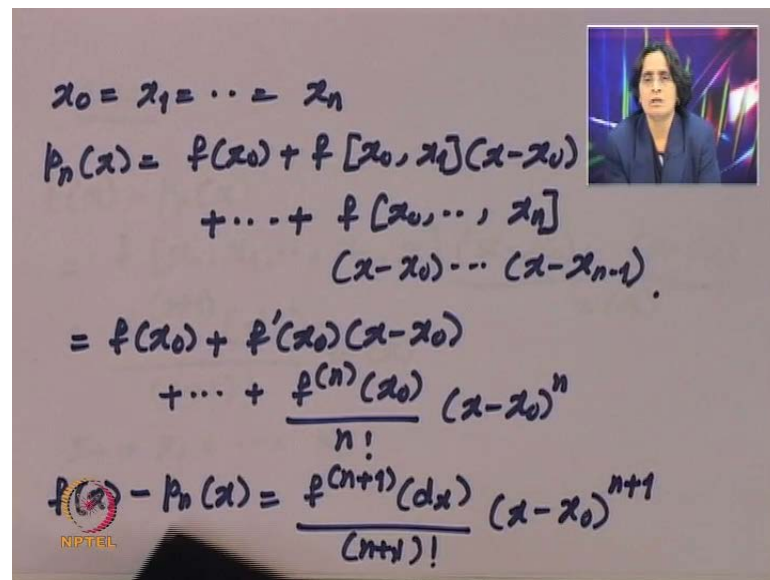 x₀ = x₁ = ·· = xₙ
pₙ(x) = f(x₀) + f[x₀, x₁](x-x₀)
+ ··· + f[x₀, ··, xₙ]
(x-x₀) ··· (x-xₙ₋₁).
= f(x₀) + f'(x₀)(x-x₀)
+ ··· + f⁽ⁿ⁾(x₀) / n! (x-x₀)ⁿ
f(x) - pₙ(x) = f⁽ⁿ⁺¹⁾(dx) / (n+1)! (x-x₀)ⁿ⁺¹
NPTEL